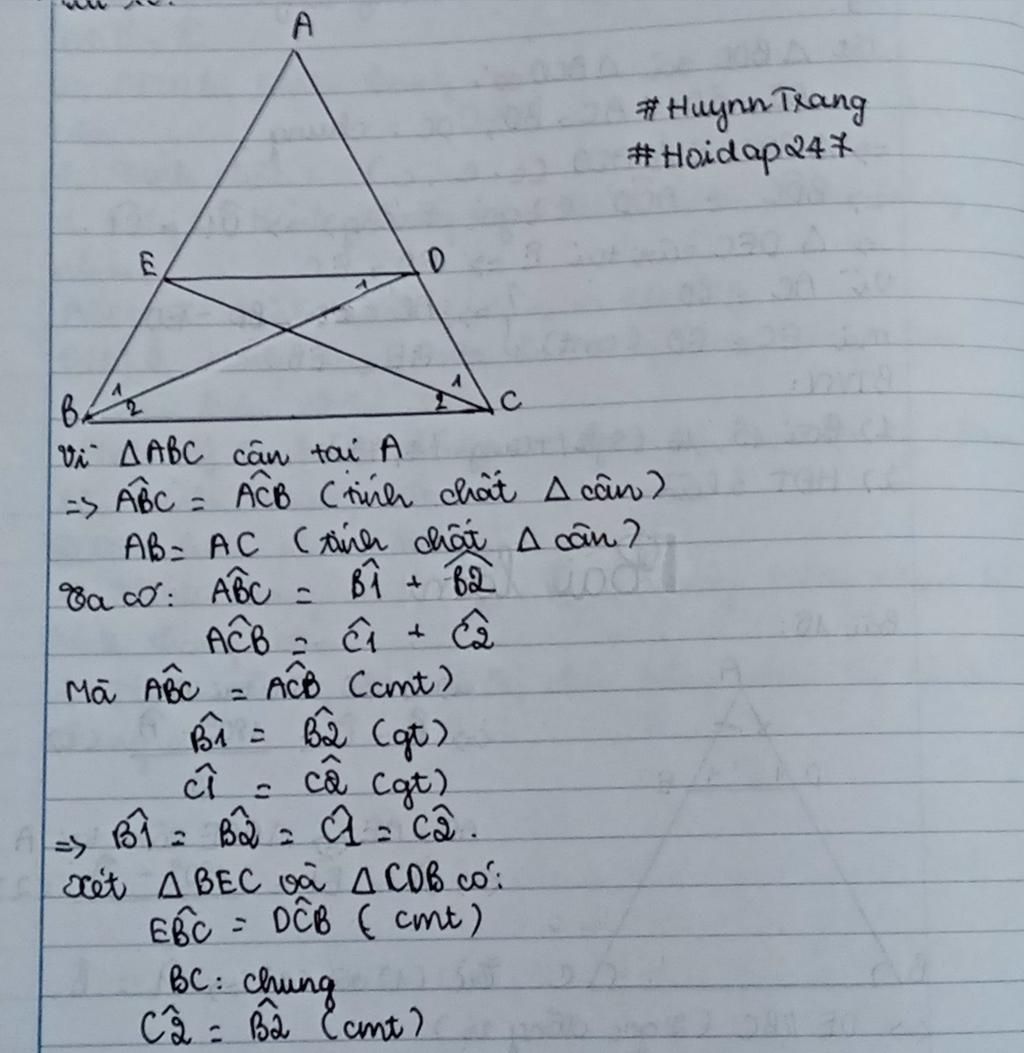 A
#HuynnTrang
#Hoidap247
E
D
1
B
1
2
1
2
C
Vì ΔABC cân tại A
=> AB̂C = AĈB (tính chất Δ cân)
AB = AC (tính chất Δ cân)
Ta có: AB̂C = B̂1 + B̂2
AĈB = Ĉ1 + Ĉ2
Mà AB̂C = AĈB (cmt)
B̂1 = B̂2 (gt)
Ĉ1 = Ĉ2 (gt)
=> B̂1 = B̂2 = Ĉ1 = Ĉ2.
Xét ΔBEC và ΔCDB có:
EB̂C = DĈB (cmt)
BC: chung
Ĉ2 = B̂2 (cmt)